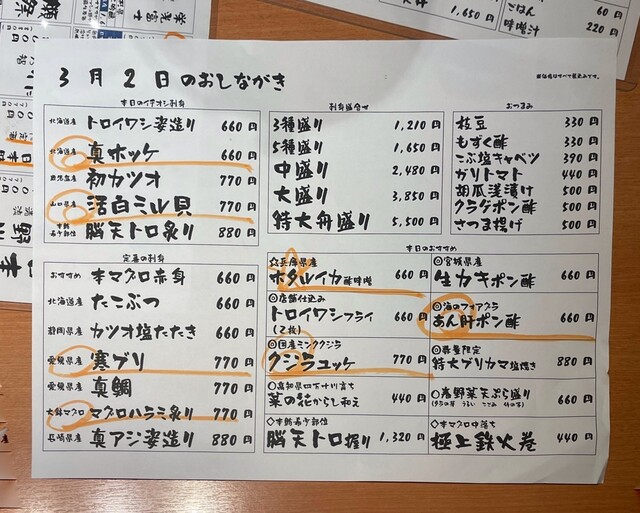 ごはん 60
味噌汁 220
1,650 円
3月2日のおしながき
本日のイチオシ刺身
北海道産 トロイワシ姿造り 660 円
北海道産 真ホッケ 660 円
鹿児島産 初カツオ 770 円
山口県産 活白ミル貝 770 円
脳天トロ炙り 880 円
刺身盛合せ
3種盛り 1,210 円
5種盛り 1,650 円
中盛り 2,480 円
大盛り 3,850 円
特大舟盛り 5,500 円
おつまみ
枝豆 330 円
もずく酢 330 円
こぶ塩キャベツ 390 円
ガリトマト 440 円
胡瓜浅漬け 500 円
クラゲポン酢 500 円
さつま揚げ 500 円
定番の刺身
おすすめ 本マグロ赤身 660 円
北海道産 たこぶつ 660 円
静岡県産 カツオ塩たたき 660 円
愛媛県産 寒ブリ 770 円
愛媛県産 真鯛 770 円
大鉢マグロ マグロハラミ炙り 770 円
長崎県産 真アジ姿造り 880 円
本日のおすすめ
☆兵庫県産
ホタルイカ酢味噌 660 円
◎店舗仕込み
トロイワシフライ
(2枚) 660 円
◎国産ミンククジラ
クジラユッケ 770 円
○高知県四万十川育ち
菜の花からし和え 440 円
◇本鮪希少部位
脳天トロ握り 1,320 円
◎宮城県産
生カキポン酢 660 円
◎海のフォアグラ
あん肝ポン酢 660 円
◎数量限定
特大ブリカマ塩焼き 880 円
○春野菜天ぷら盛り 660 円
◇本マグロ中落ち
極上鉄火巻 440 円